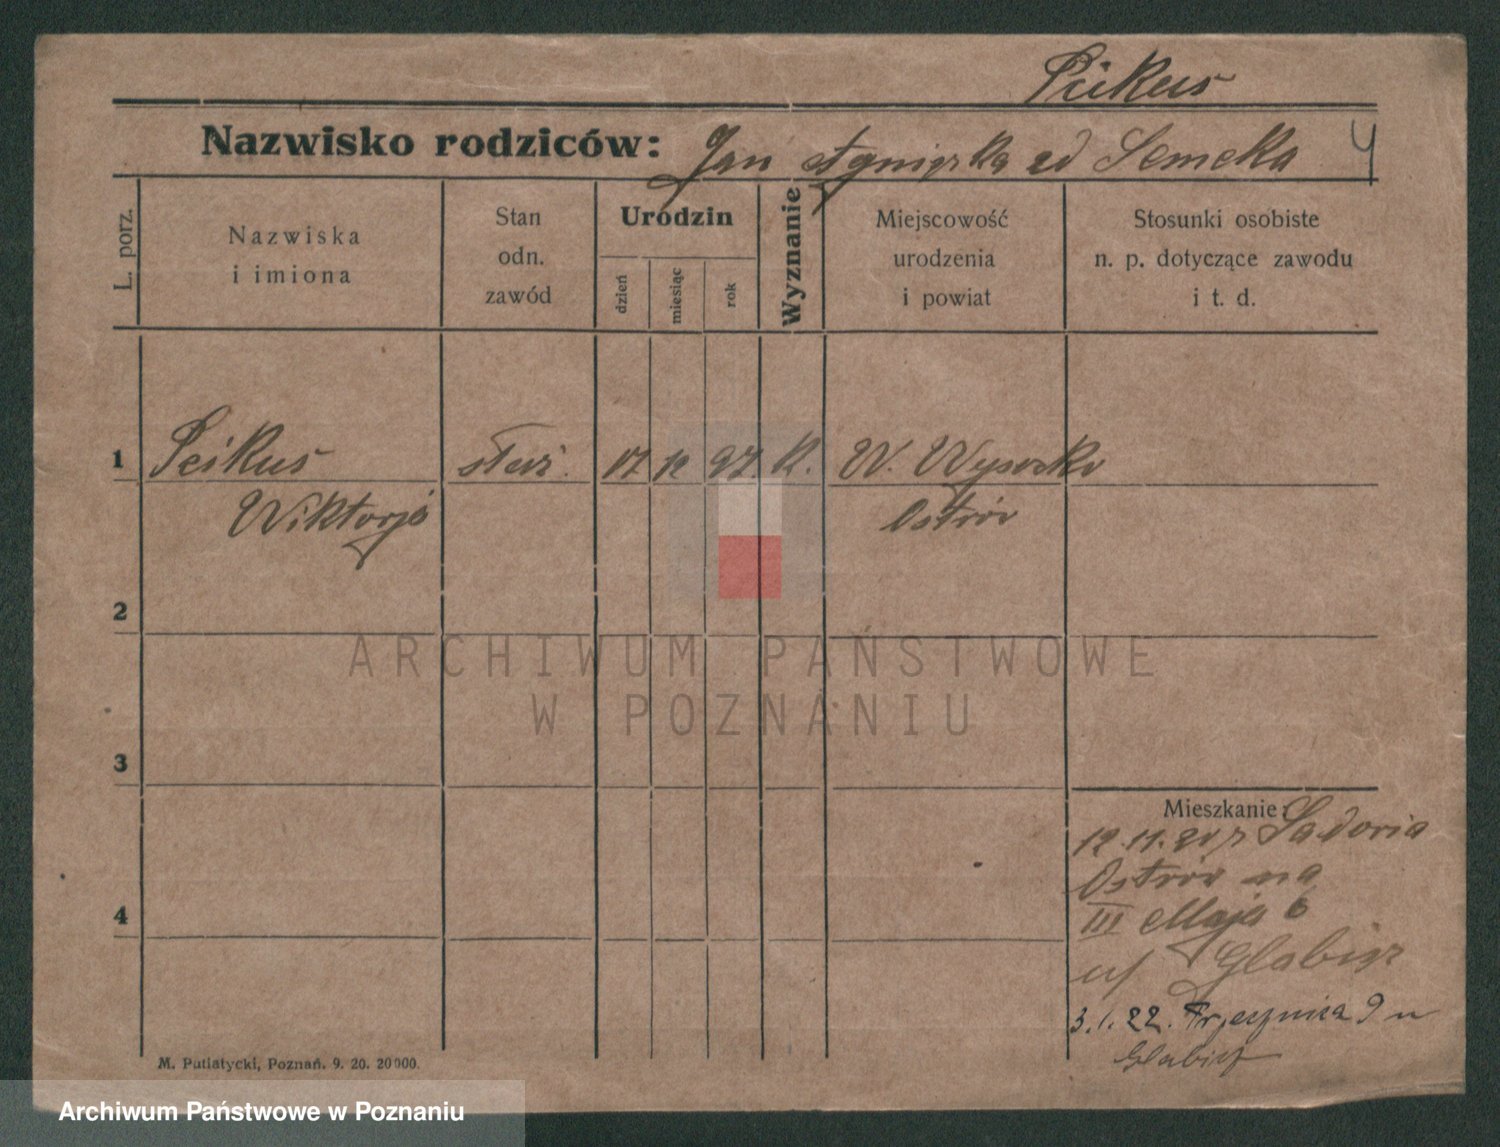 Peikus
Nazwisko rodziców: Jan Agnieszka zd Semeka
4
L. porz.
Nazwiska
i imiona
Stan
odn.
zawód
Urodzin
dzień
miesiąc
rok
Wyznanie
Miejscowość
urodzenia
i powiat
Stosunki osobiste
n. p. dotyczące zawodu
i t. d.
1 Peikus służ. 17 12 97 K. W. Wysocko
Wiktorja Ostrów
2
3
4
ARCHIWUM PAŃSTWOWE
W POZNANIU
Mieszkanie:
12.11.20 z
Ostrów na
III Maja 6
u/ Glabisz
3.1.22. 9 u
Glabisz
M. Putiatycki, Poznań. 9. 20. 20000.
Archiwum Państwowe w Poznaniu